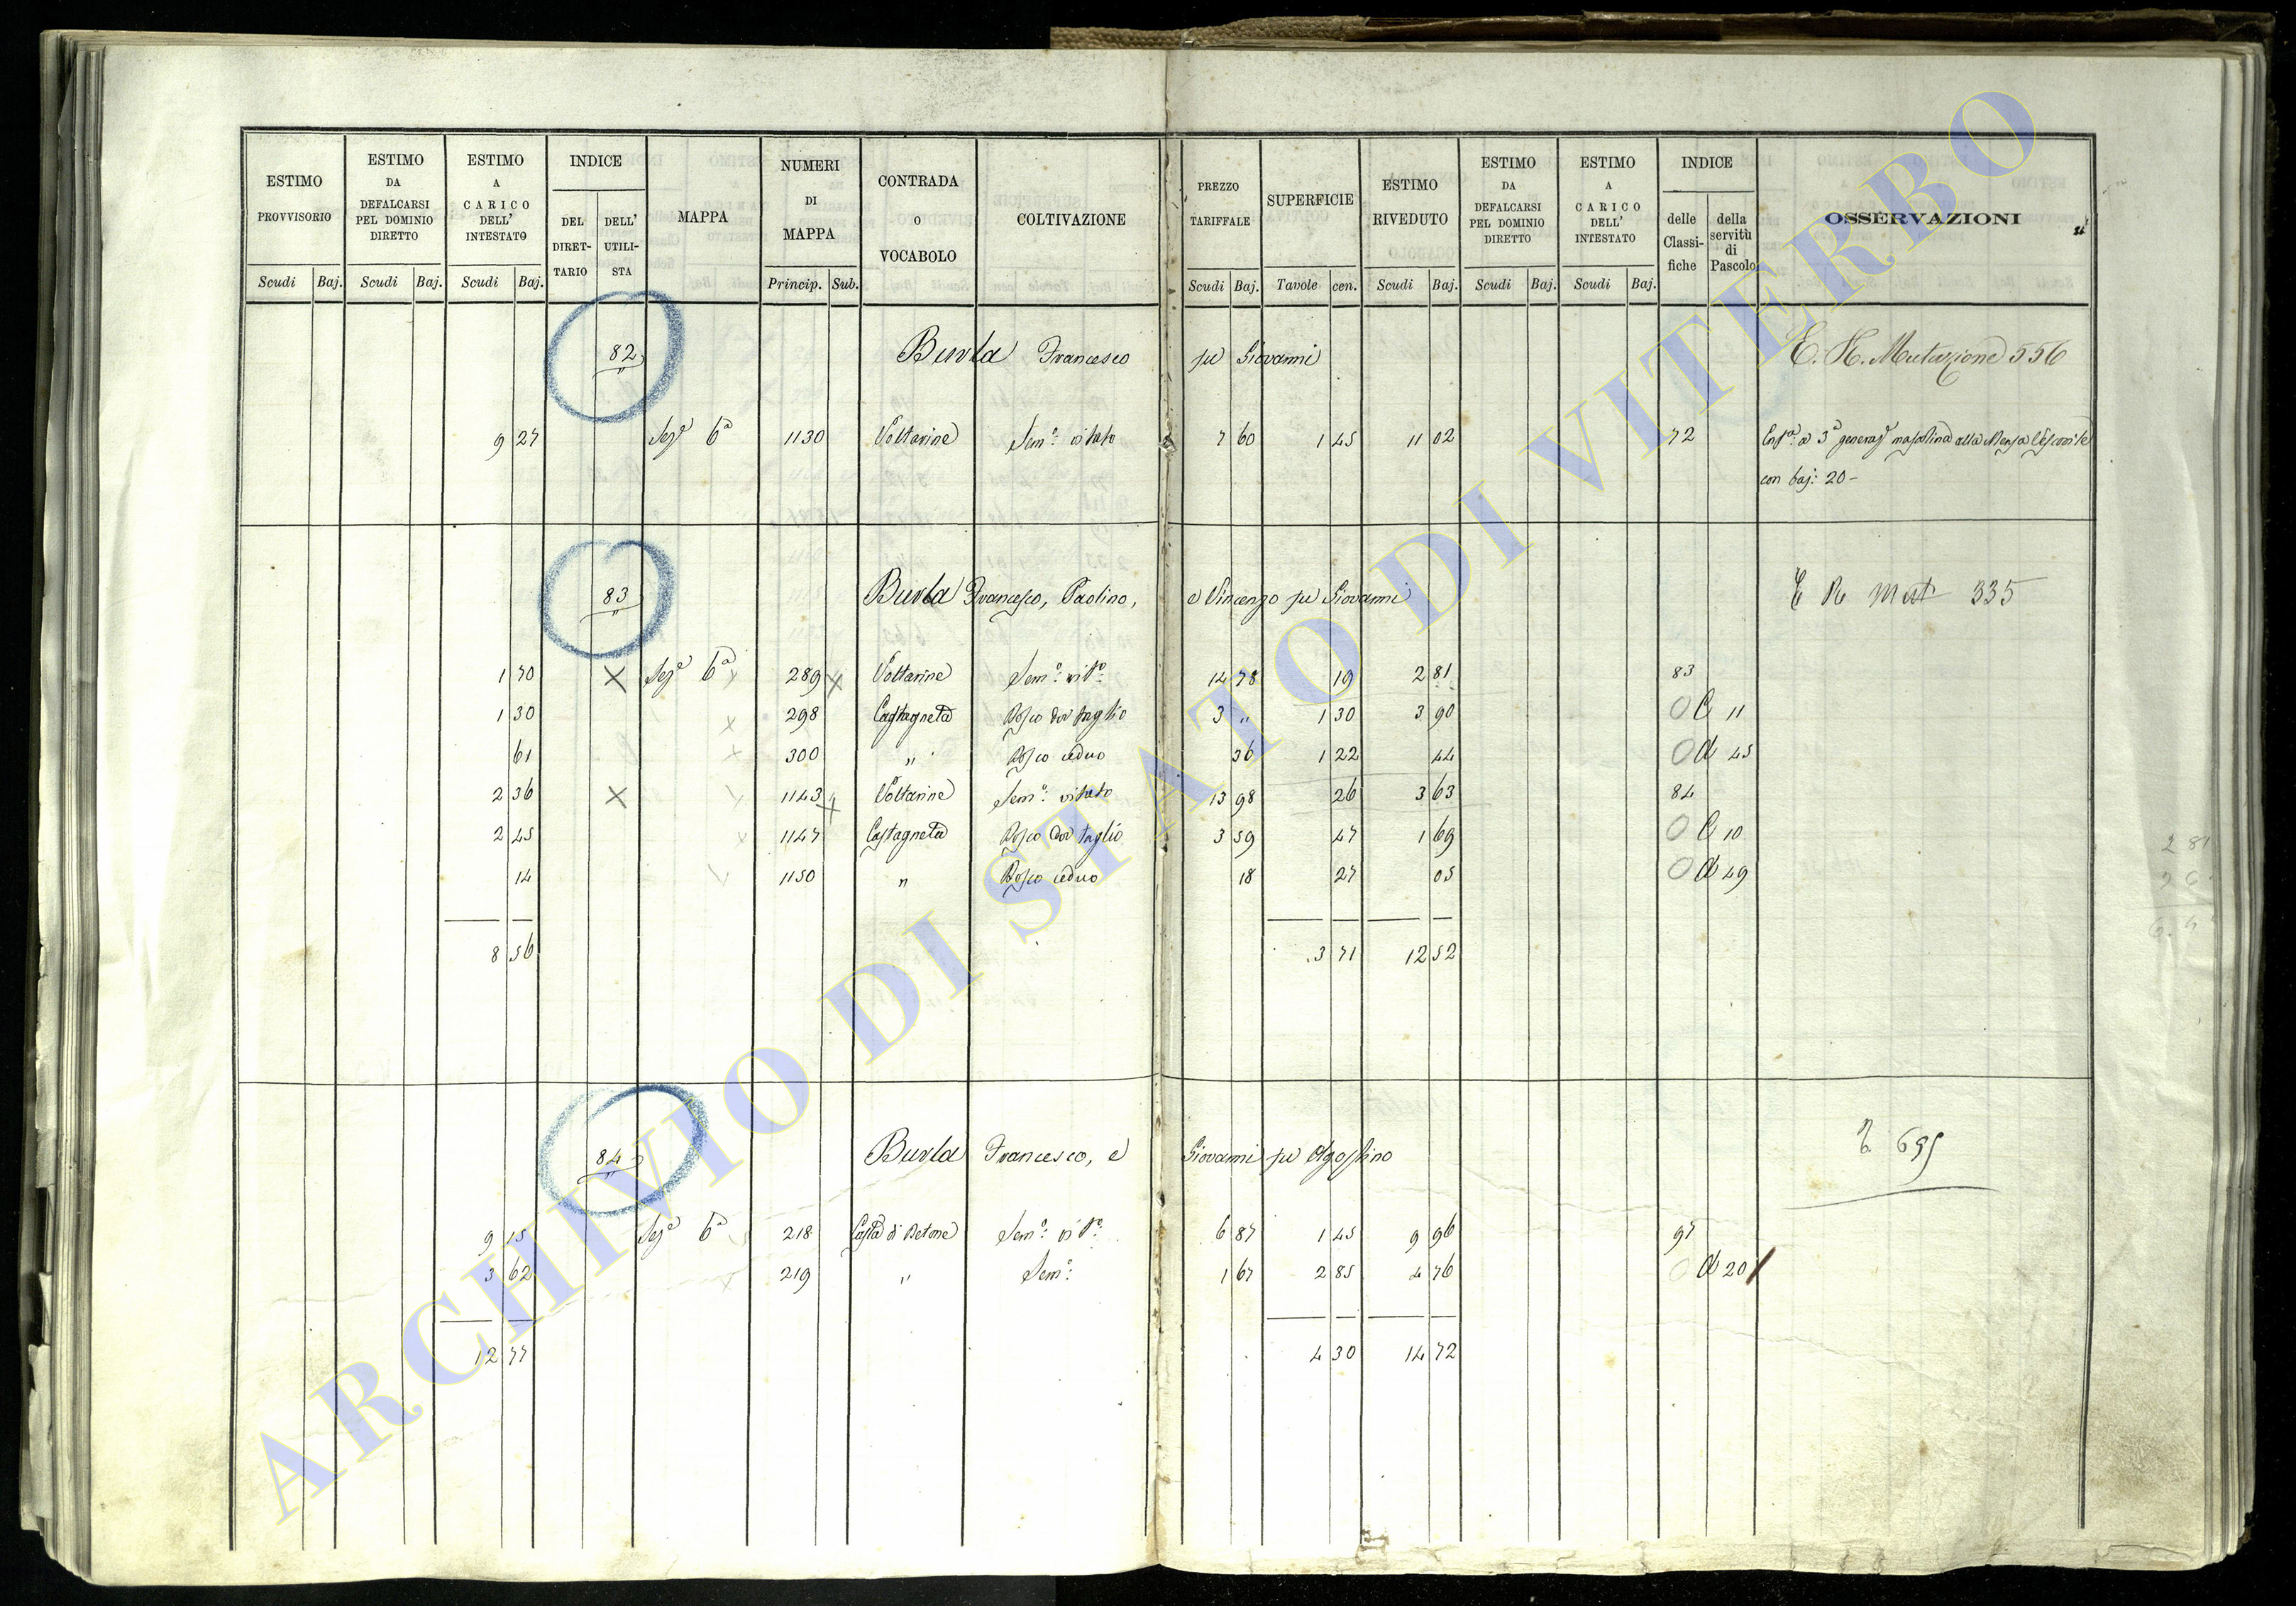 ESTIMO PROVVISORIO ESTIMO DA DEFALCARSI PEL DOMINIO DIRETTO ESTIMO A CARICO DELL' INTESTATO INDICE DEL DIRETTARIO DELL' UTILISTA MAPPA NUMERI DI MAPPA CONTRADA O VOCABOLO COLTIVAZIONE PREZZO TARIFFALE SUPERFICIE ESTIMO RIVEDUTO ESTIMO DA DEFALCARSI PEL DOMINIO DIRETTO ESTIMO A CARICO DELL' INTESTATO INDICE delle Classifiche della servitù di Pascolo OSSERVAZIONI
Scudi Baj. Scudi Baj. Scudi Baj. Princip. Sub. Scudi Baj. Tavole cen. Scudi Baj. Scudi Baj. Scudi Baj.
82 Burla Francesco fu Giovanni Mutazione 556
9 27 Sezᵉ 6ª 1130 Voltarine Semº: vitato 7 60 1 45 11 02 72 a 3ª masolina alla Mensa
con baj: 20-
83 Burla Francesco, Paolino, e Vincenzo fu Giovanni E R Mut 335
1 70 X Sezᵉ 6ª 289 Voltarine Semº: vitº: 14 78 19 2 81 83
1 30 298 Castagneta Bosco dol taglio 3 " 1 30 3 90 C 11
61 300 " Bosco ceduo 36 1 22 44 A 45
2 36 X 1143 Voltarine Semº: vitato 13 98 26 3 63 84
2 45 1147 Castagneta Bosco dol taglio 3 59 47 1 69 C 10
14 1150 " Bosco ceduo 18 27 05 A 49
8 56 3 71 12 52
84 Burla Francesco, e Giovanni fu Agostino 695
9 15 Sezᵉ 6ª 218 Costa di Betone Semº: vitº: 6 87 1 45 9 96 97
3 62 219 " Semº: 1 67 2 85 4 76 A 20
12 77 4 30 14 72
ARCHIVIO DI STATO DI VITERBO